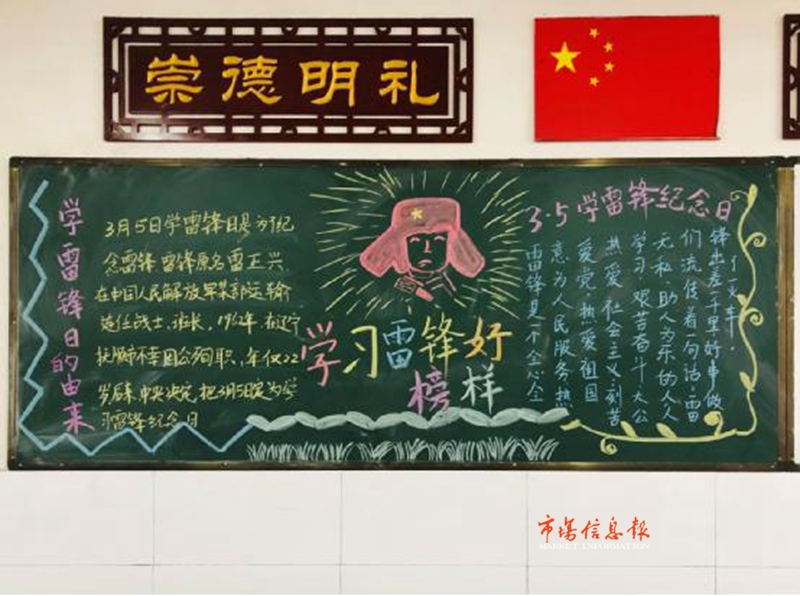 崇德明礼
学雷锋日的由来
3月5日学雷锋日是为了纪
念雷锋 雷锋原名雷正兴
在中国人民解放军某部运输
连任战士, 班长, 1962年在辽宁
抚顺市不幸因公殉职, 年仅22
岁后来, 中央决定, 把3月5定为学
习雷锋纪念日
学习雷锋好
榜样
3·5学雷锋纪念日
雷锋是一个全心全
意为人民服务热
爱党·热爱祖国
热爱社会主义·刻苦
学习 艰苦奋斗 大公
无私·助人为乐的人人
们流传着一句话:雷
锋出差一千里好事做
了一火车.
市场信息報
MARKET INFORMATION